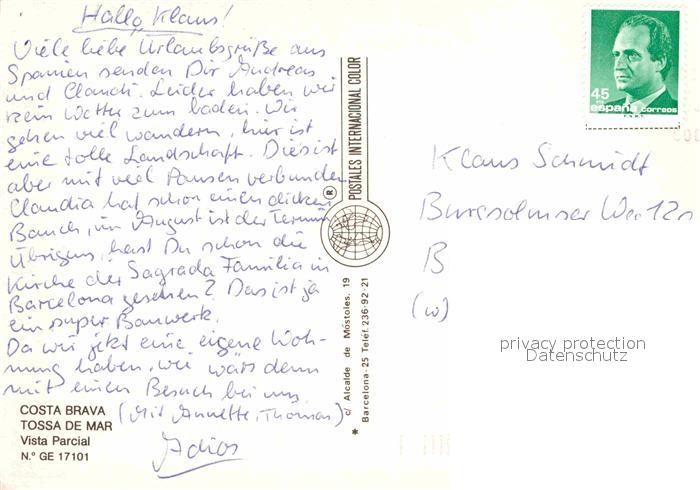 Hallo, Klaus!
Viele liebe Urlaubsgrüße aus
Spanien senden Dir Andreas
und Claudi. Leider haben wir
kein Wetter zum baden. Wir
gehen viel wandern, hier ist
eine tolle Landschaft. Dies ist
aber mit viel Pausen verbunden
Claudia hat schon einen dicken
Bauch, im August ist der Termin
Übrigens, hast Du schon die
Kirche der Sagrada Familia in
Barcelona gesehen? Das ist ja
ein super Bauwerk.
Da wir jetzt eine eigene Woh-
nung haben, wie wärs denn
mit einen Besuch bei uns
(Mit Annette, Thomas)
Adios
COSTA BRAVA
TOSSA DE MAR
Vista Parcial
N.º GE 17101
POSTALES INTERNACIONAL COLOR
®
c/ Alcalde de Móstoles, 19
Barcelona-25 Teléf. 236-92-21
*
45
PTA
españa correos
F.N.M.T.
Klaus Schmidt
12a
B
(W)
privacy protection
Datenschutz